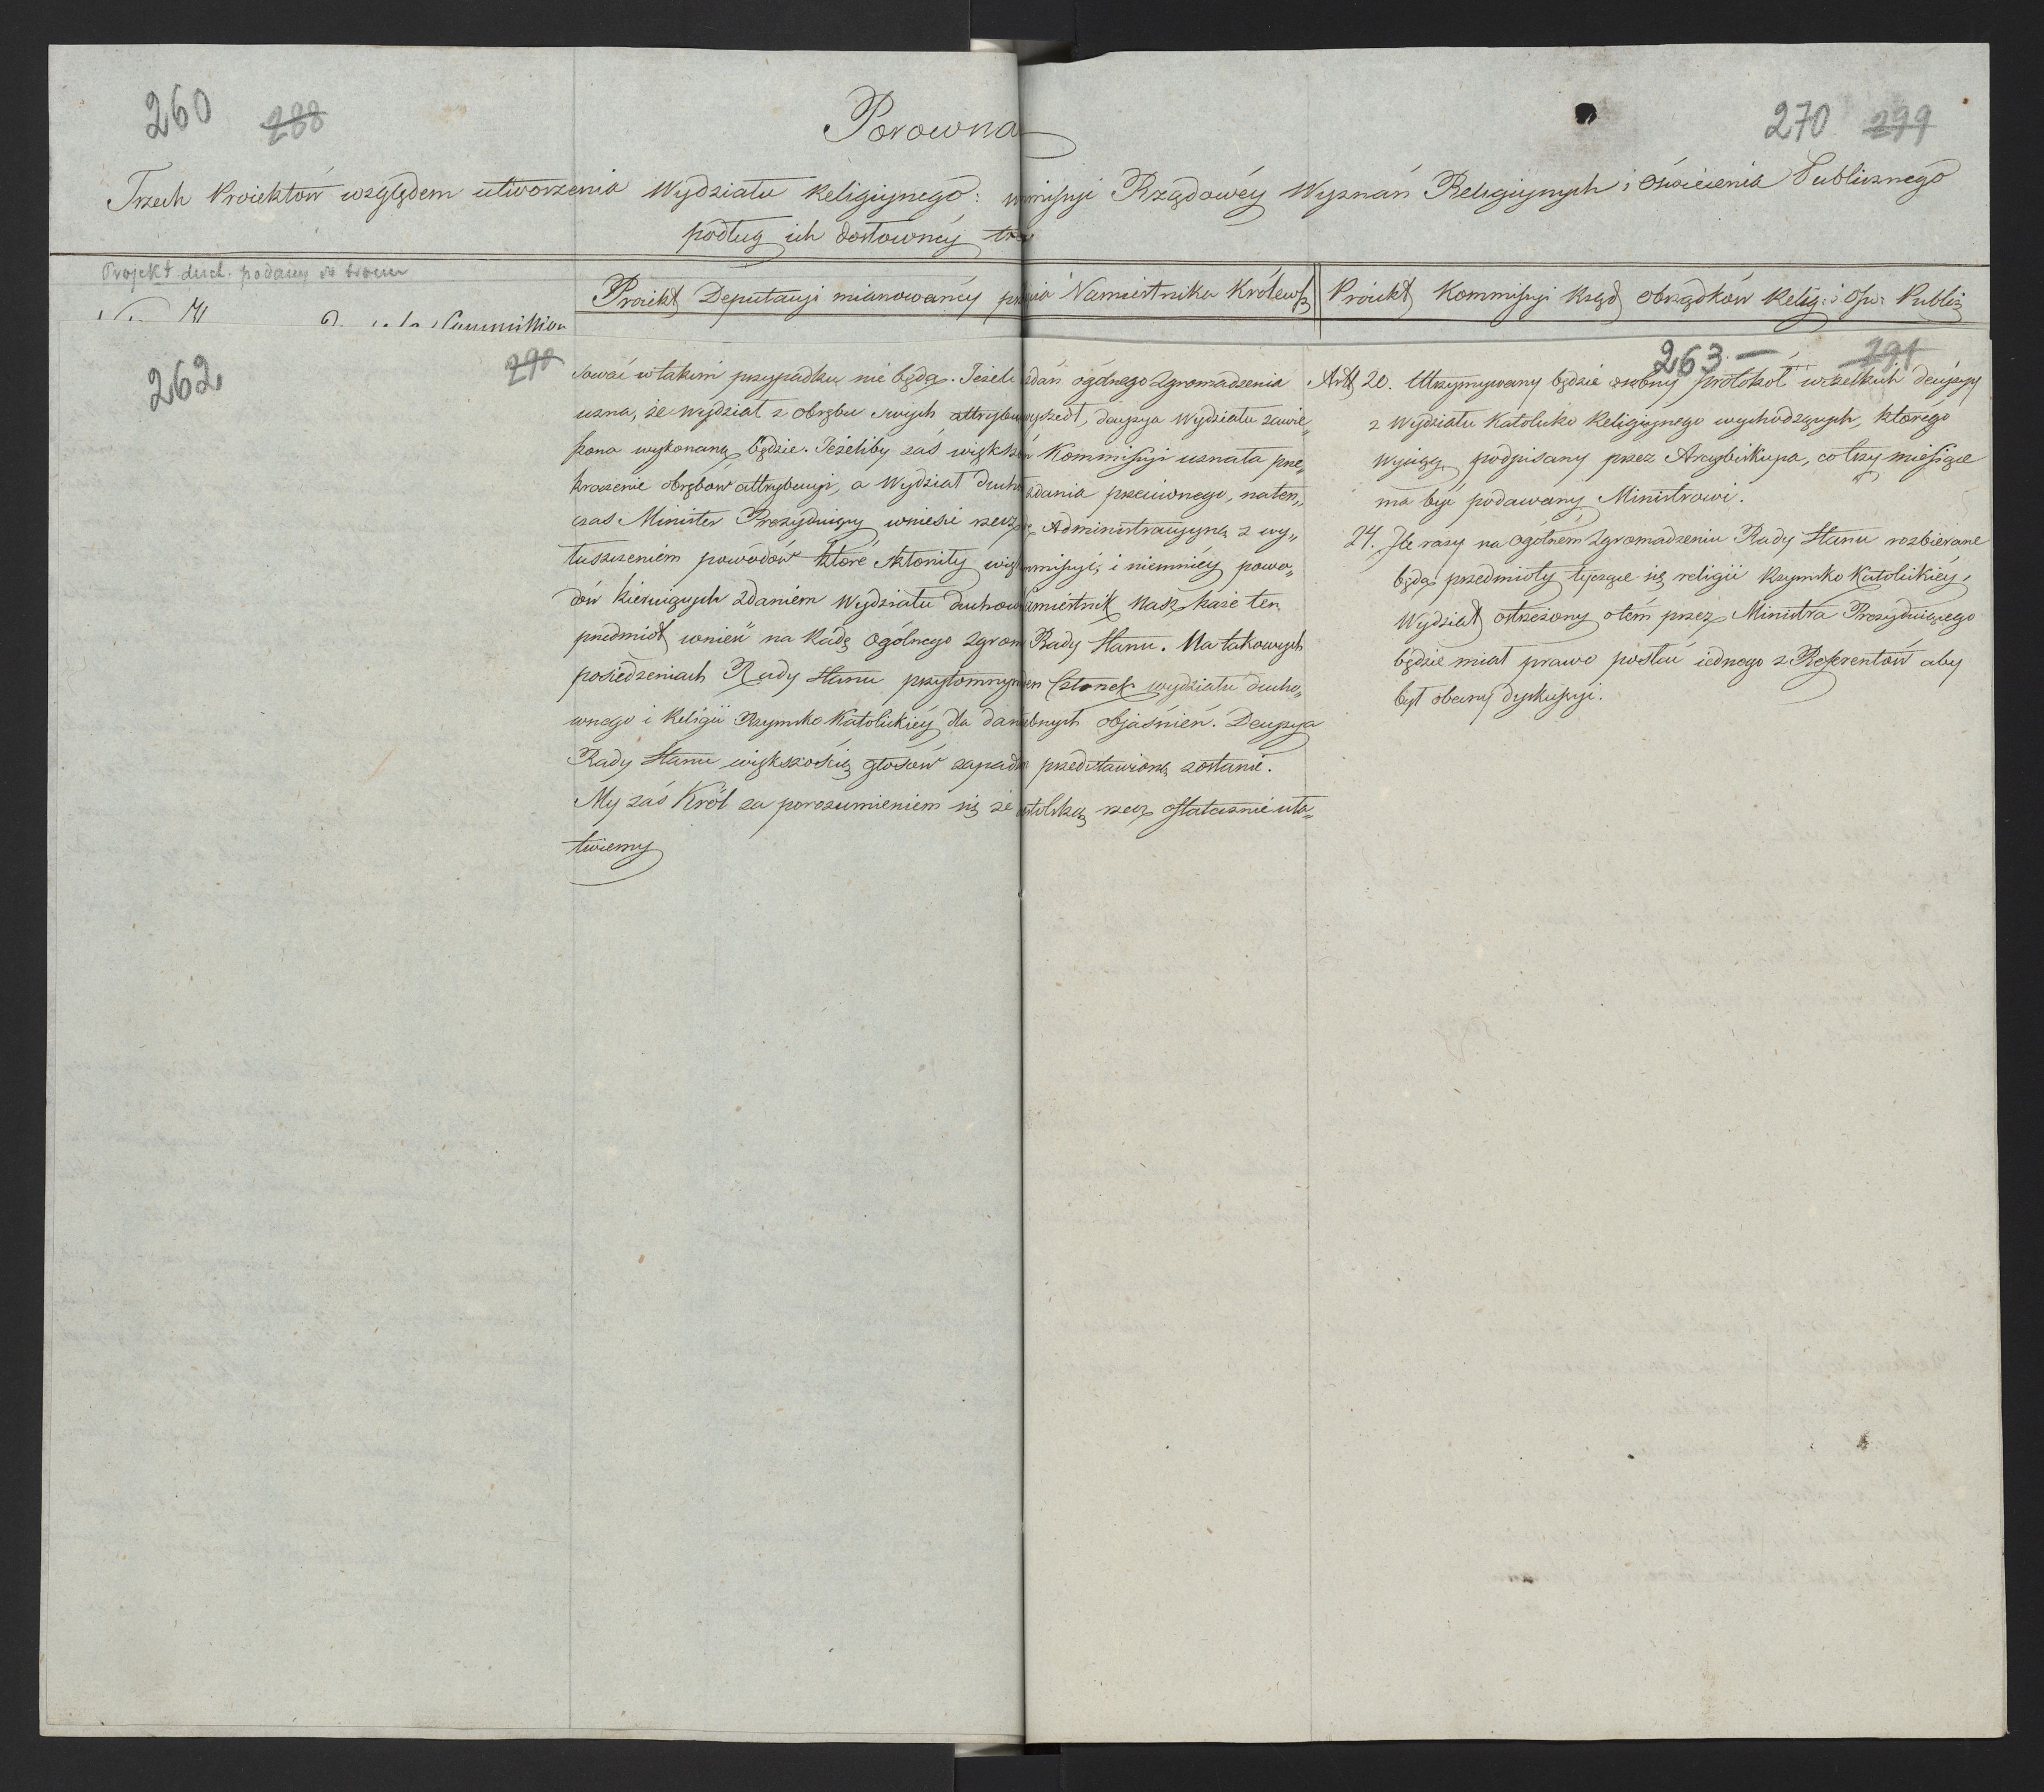 260 288
270 299
Porowna
Trzech Proiektów względem utworzenia Wydziału Religiynego: mmissyi Rządowéy Wyznań Religiynych i Oświecenia Publicznego
podług ich dosłownéy tre
Projekt duch. podany do tronu
Proiekt Deputacyi mianowanéy nia Namiestnika Królewsk
Proiekt Kommissyi Rząd obrządków Relig: i Ośw: Public
262 290
263 — 291
sować w takim przypadku nie będą. Jeżeli zdań ogólnego Zgromadzenia
uzna, że wydział z obrębu swych attrybu wyszedł, decyzya Wydziału zawie„
szona wykonaną będzie. Jeżeliby zaś większ Kommissyi uznała prze„
kroczenie obrębów attrybucyi, a Wydział Ducho zdania przeciwnego, naten„
czas Minister Prezyduiący wniesie rzecz Administracyyną z wy„
łuszczeniem powodów które skłoniły więk mmissyi, i niemniéy powo„
dów kieruiących zdaniem Wydziału duchow Namiestnik Nasz każe ten
przedmiot wnieść na Radę Ogólnego Zgrom Rady Stanu. Na takowych
posiedzeniach Rady Stanu przytomnym den Członek wydziału ducho„
wnego i Religii Rzymsko Katolickiéy dla dan ebnych objaśnień. Decyzya
Rady Stanu większością głosów zapad przedstawioną zostanie.
My zaś Król za porozumieniem się ze stolicą rzecz ostatecznie uła„
twiemy
Art 20. Utrzymywany będzie osobny protokół wszelkich decyzyy
z Wydziału Katolicko Religiynego wychodzących, którego
wyciąg podpisany przez Arcybiskupa, co trzy miesiące
ma być podawany Ministrowi.
21. Ile razy na Ogólném Zgromadzeniu Rady Stanu rozbierane
będą przedmioty tyczące się religii Rzymsko Katolickiéy,
Wydział ostrzeżony o tém przez Ministra Prezyduiącego
będzie miał prawo posłać iednego z Referentów aby
był obecny dyskussyi.